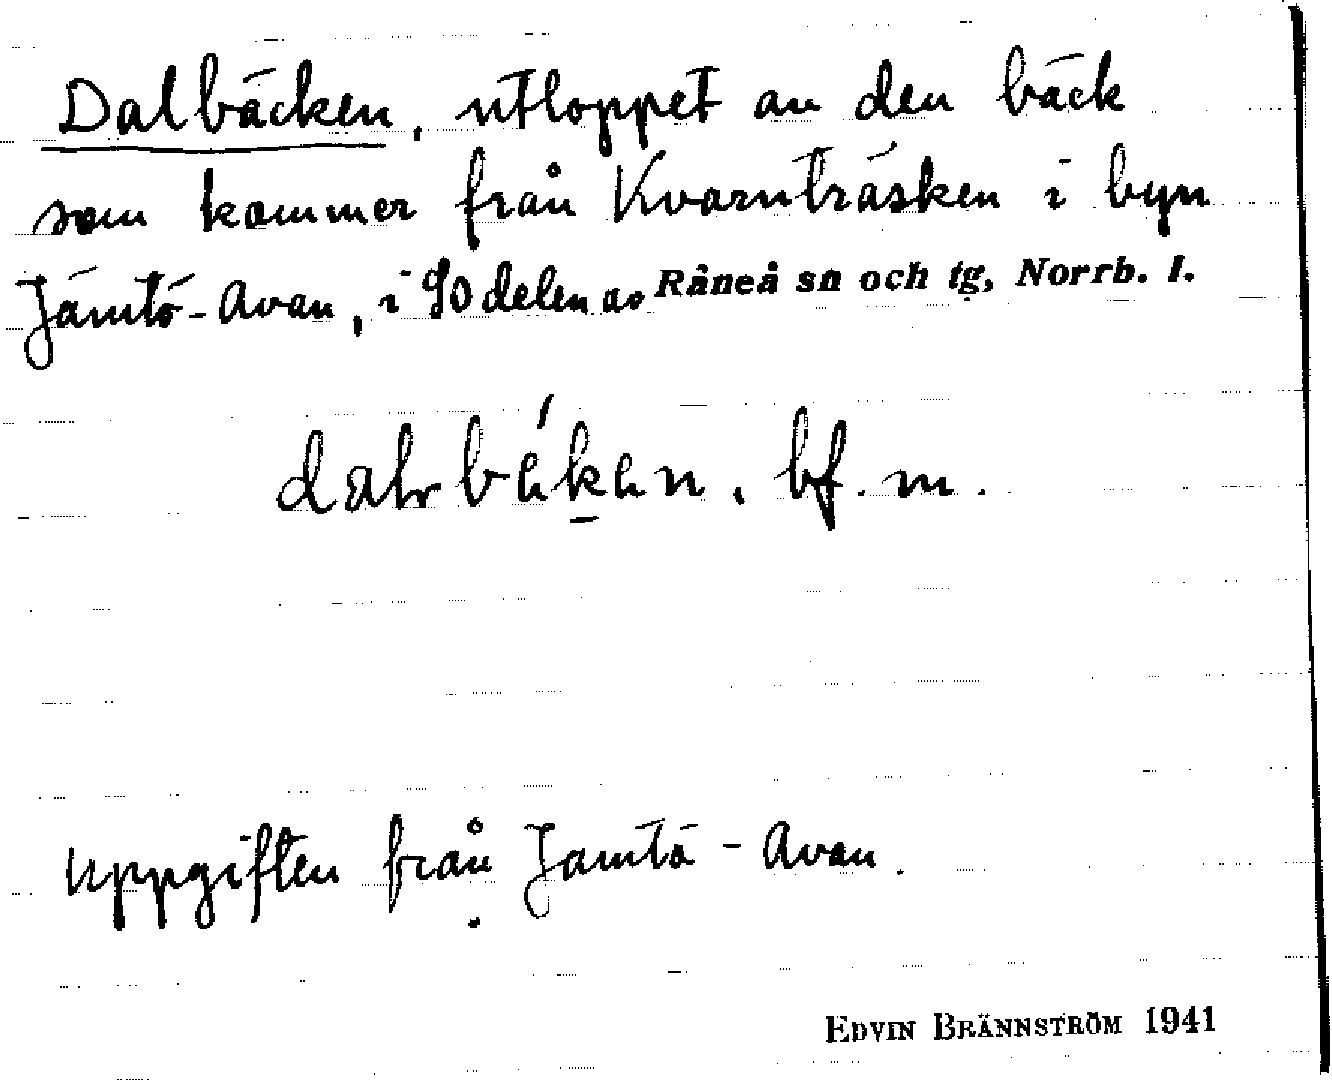 Dalbäcken, utloppet av den bäck
som kommer från Kvarnträsken i byn
Jämtö-Avan, i SO delen av Råneå sn och tg, Norrb. l.
bf. m.
Uppgiften från Jämtö-Avan.
EDVIN BRÄNNSTRÖM 1941